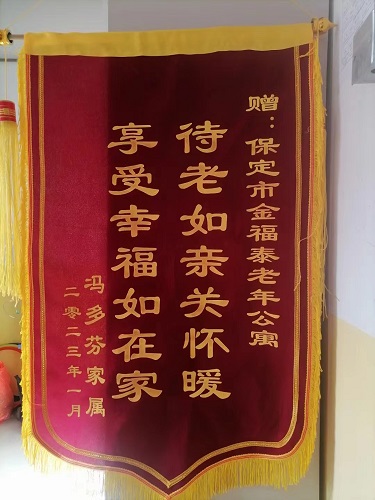 赠：保定市金福泰老年公寓
待老如亲关怀暖
享受幸福如在家
冯多芬家属
二零二三年一月